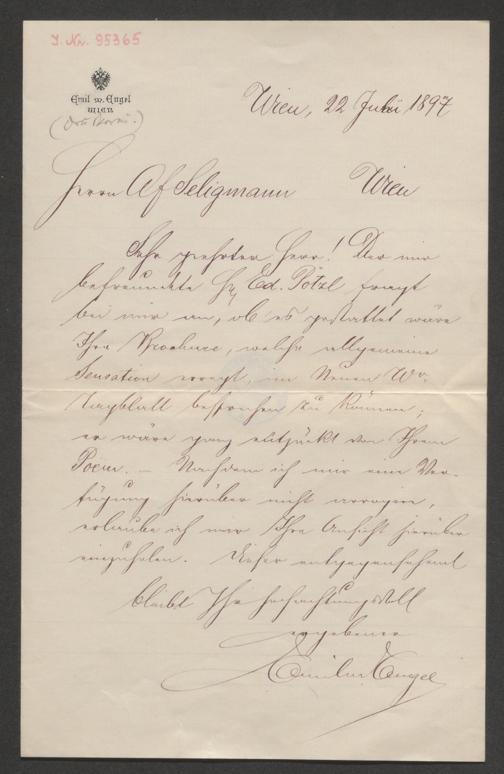 I. Nr. 95365
Emil M. Engel
WIEN
Wien, 22 Juli 1897
Herrn A F Seligmann Wien
Sehr geehrter Herr! Der mir
befreundete Hr. Ed. Pötzl fragt
bei mir an, ob es gestattet wäre
Ihre Broschure, welche allgemeine
Sensation erregt, im Neuen Wr.
Tagblatt besprechen zu können;
er wäre ganz entzückt von Ihrem
Poem. — Nachdem ich mir eine Ver-
fügung hierüber nicht arrogire,
erlaube ich mir Ihre Ansicht hierüber
einzuholen. Dieser entgegensehend
bleibt Ihr hochachtungsvoll
ergebener
Emil M Engel